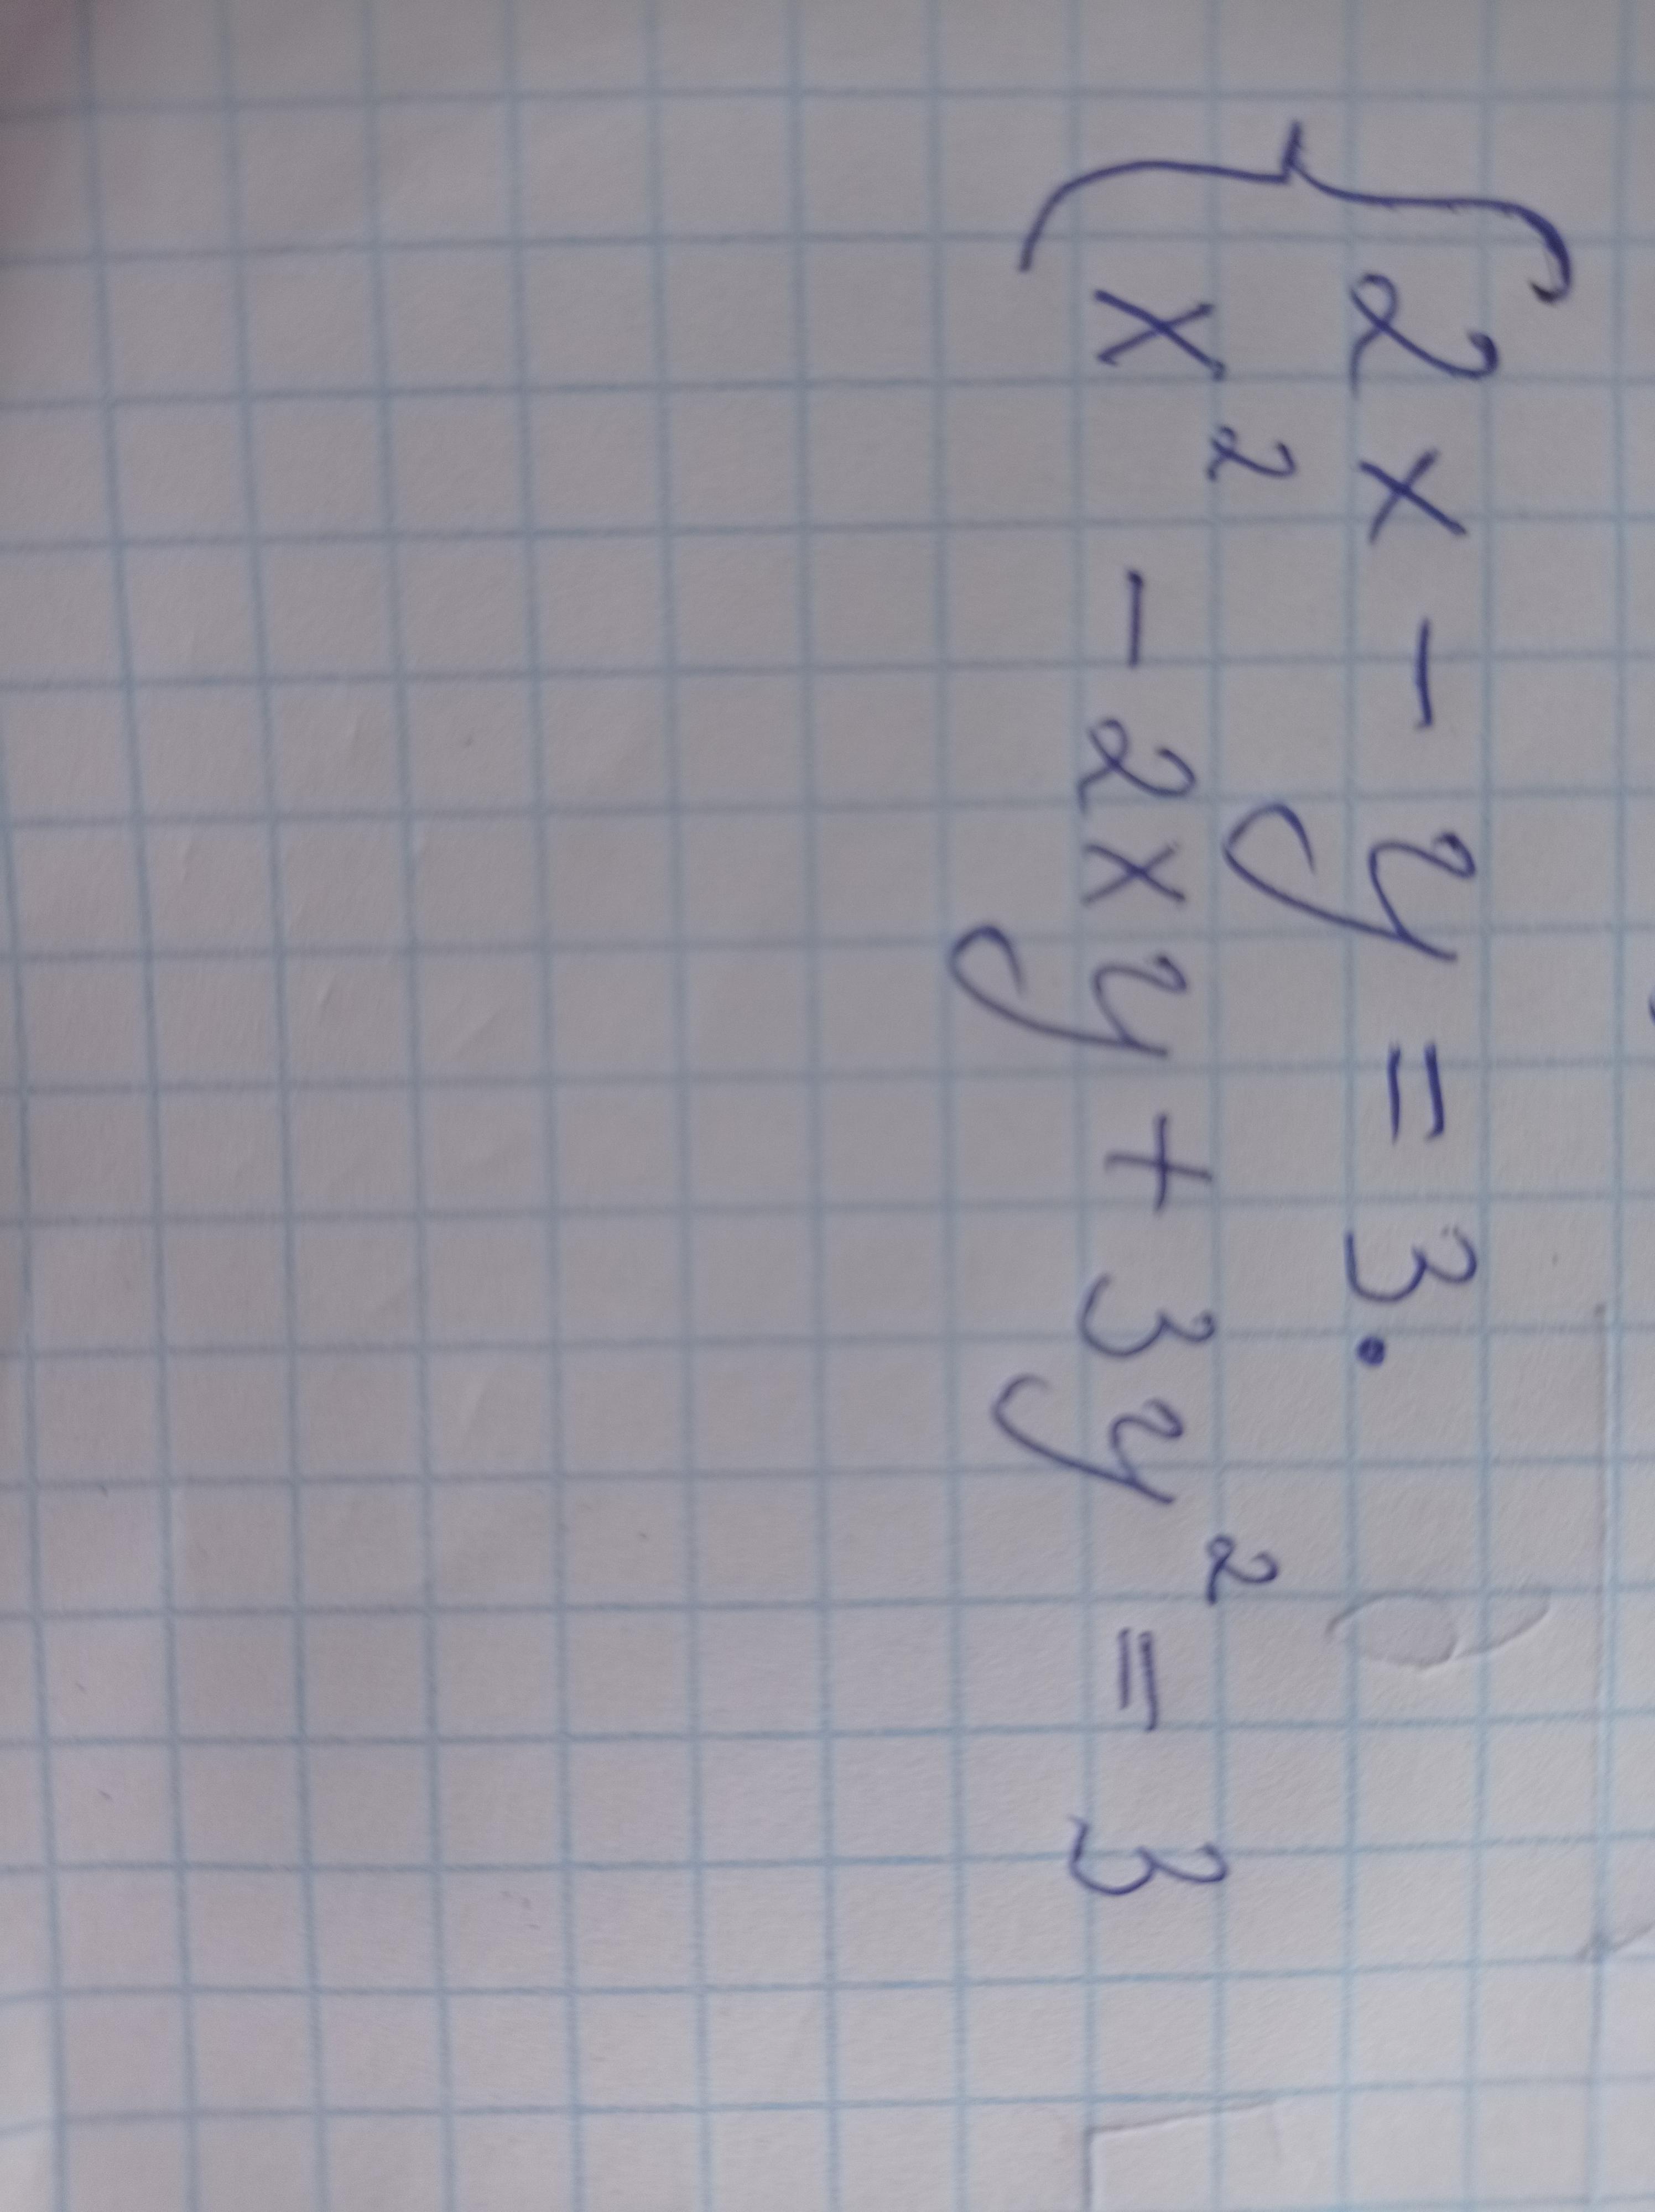 2x - y = 3.
x² - 2xy + 3y² = 3